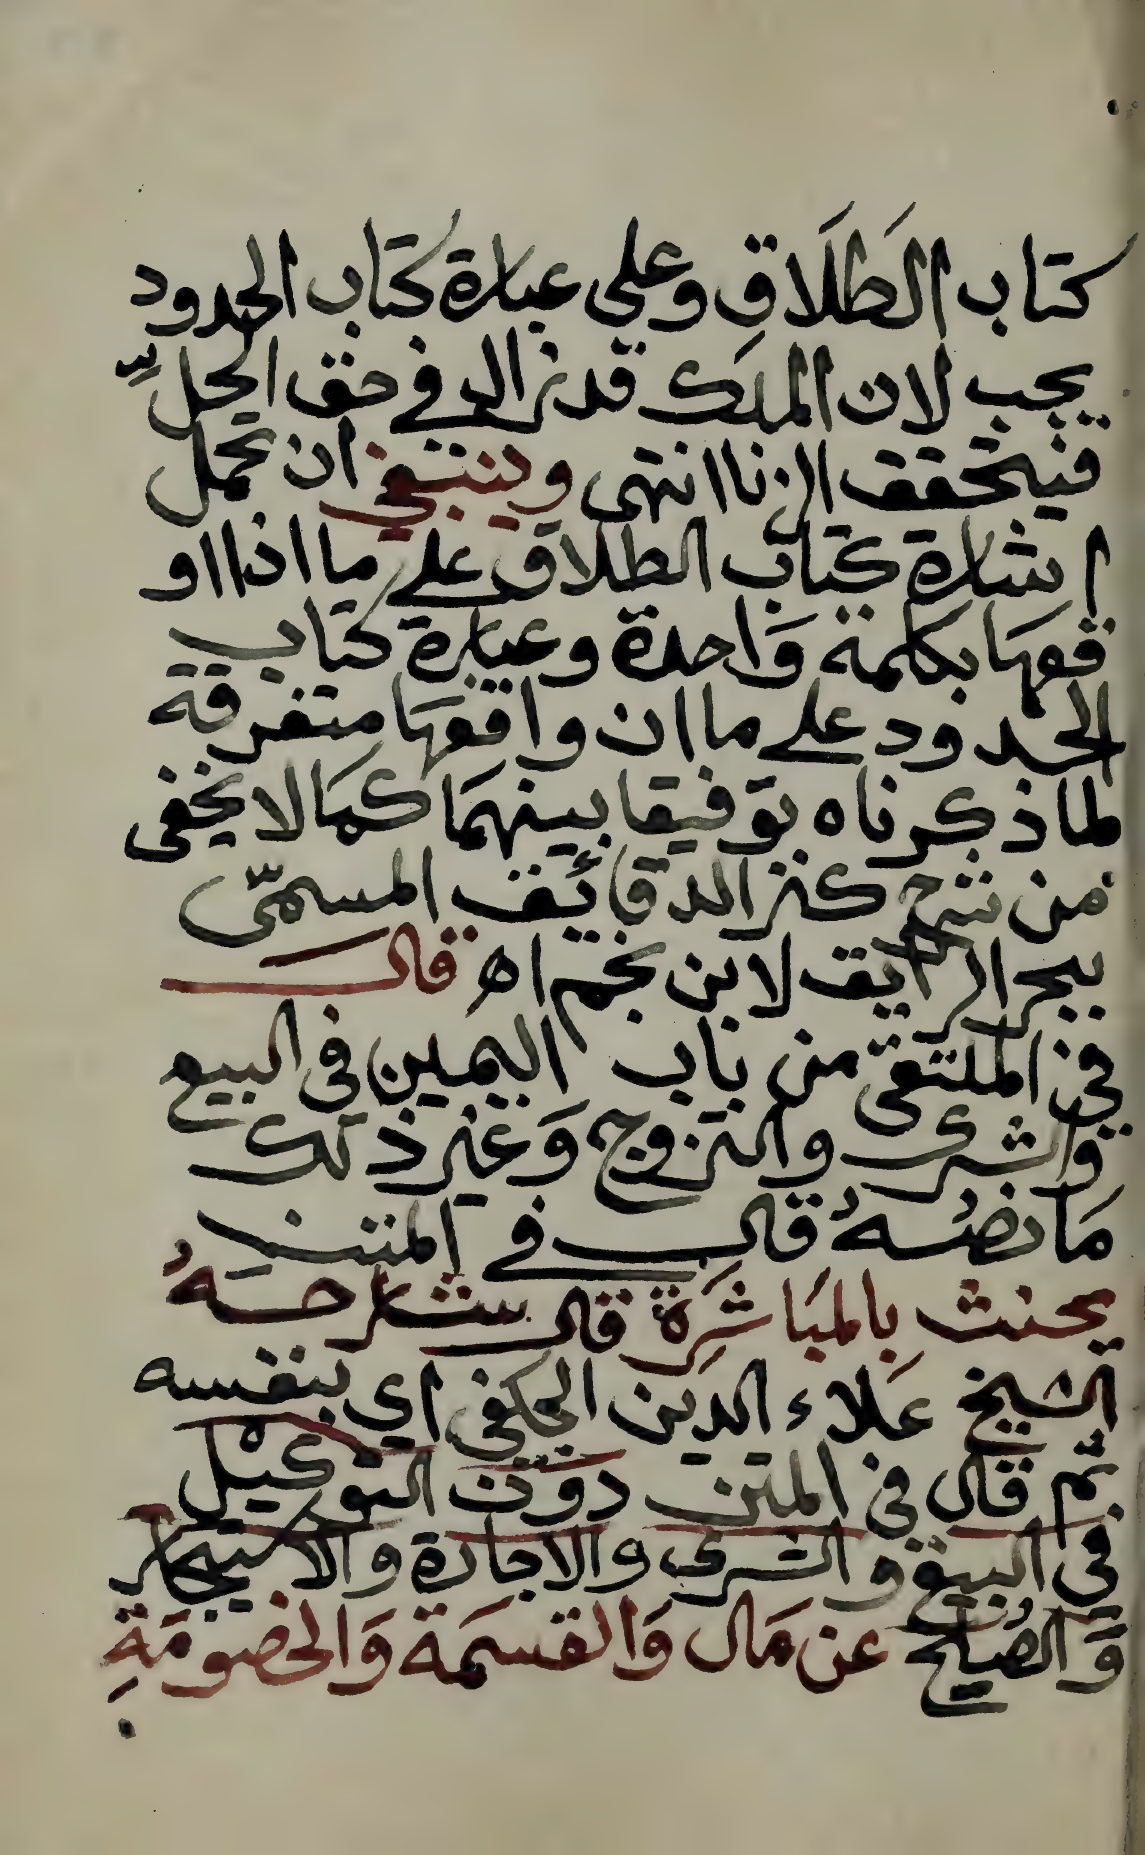 كتاب الطَلَاقِ وعلى عبارة كتاب الحدود
يجب لان الملك قد زال في حق الحل
فيتحقق الزنا انتهى وينبغي ان تحمل
اشارة كتاب الطلاق على ما اذا او
قعها بكلمة وَاحدة وعبارة كتاب
الحدود على ما ان واقعها متفرقة
لما ذكرناه توفيقا بينهما كما لا يخفى
من شرح كنز الدقائق المسمّى
ببحر الرايق لابن نجيم اه قال
في الملتقى من باب اليمين في البيع
والشرى والتزوج وَغير ذلك
مَا نصُهُ قال في المتن
يحنث بِالمبَاشَرَة قال شارحهُ
الشيخ عَلاء الدين الحصكفي اي بنفسه
ثم قال في المتن دون التوكيل
في البيع والشرى والاجارة والاستيجار
وَالصُلح عن مَال وَالقسمَة وَالخصومَةِ